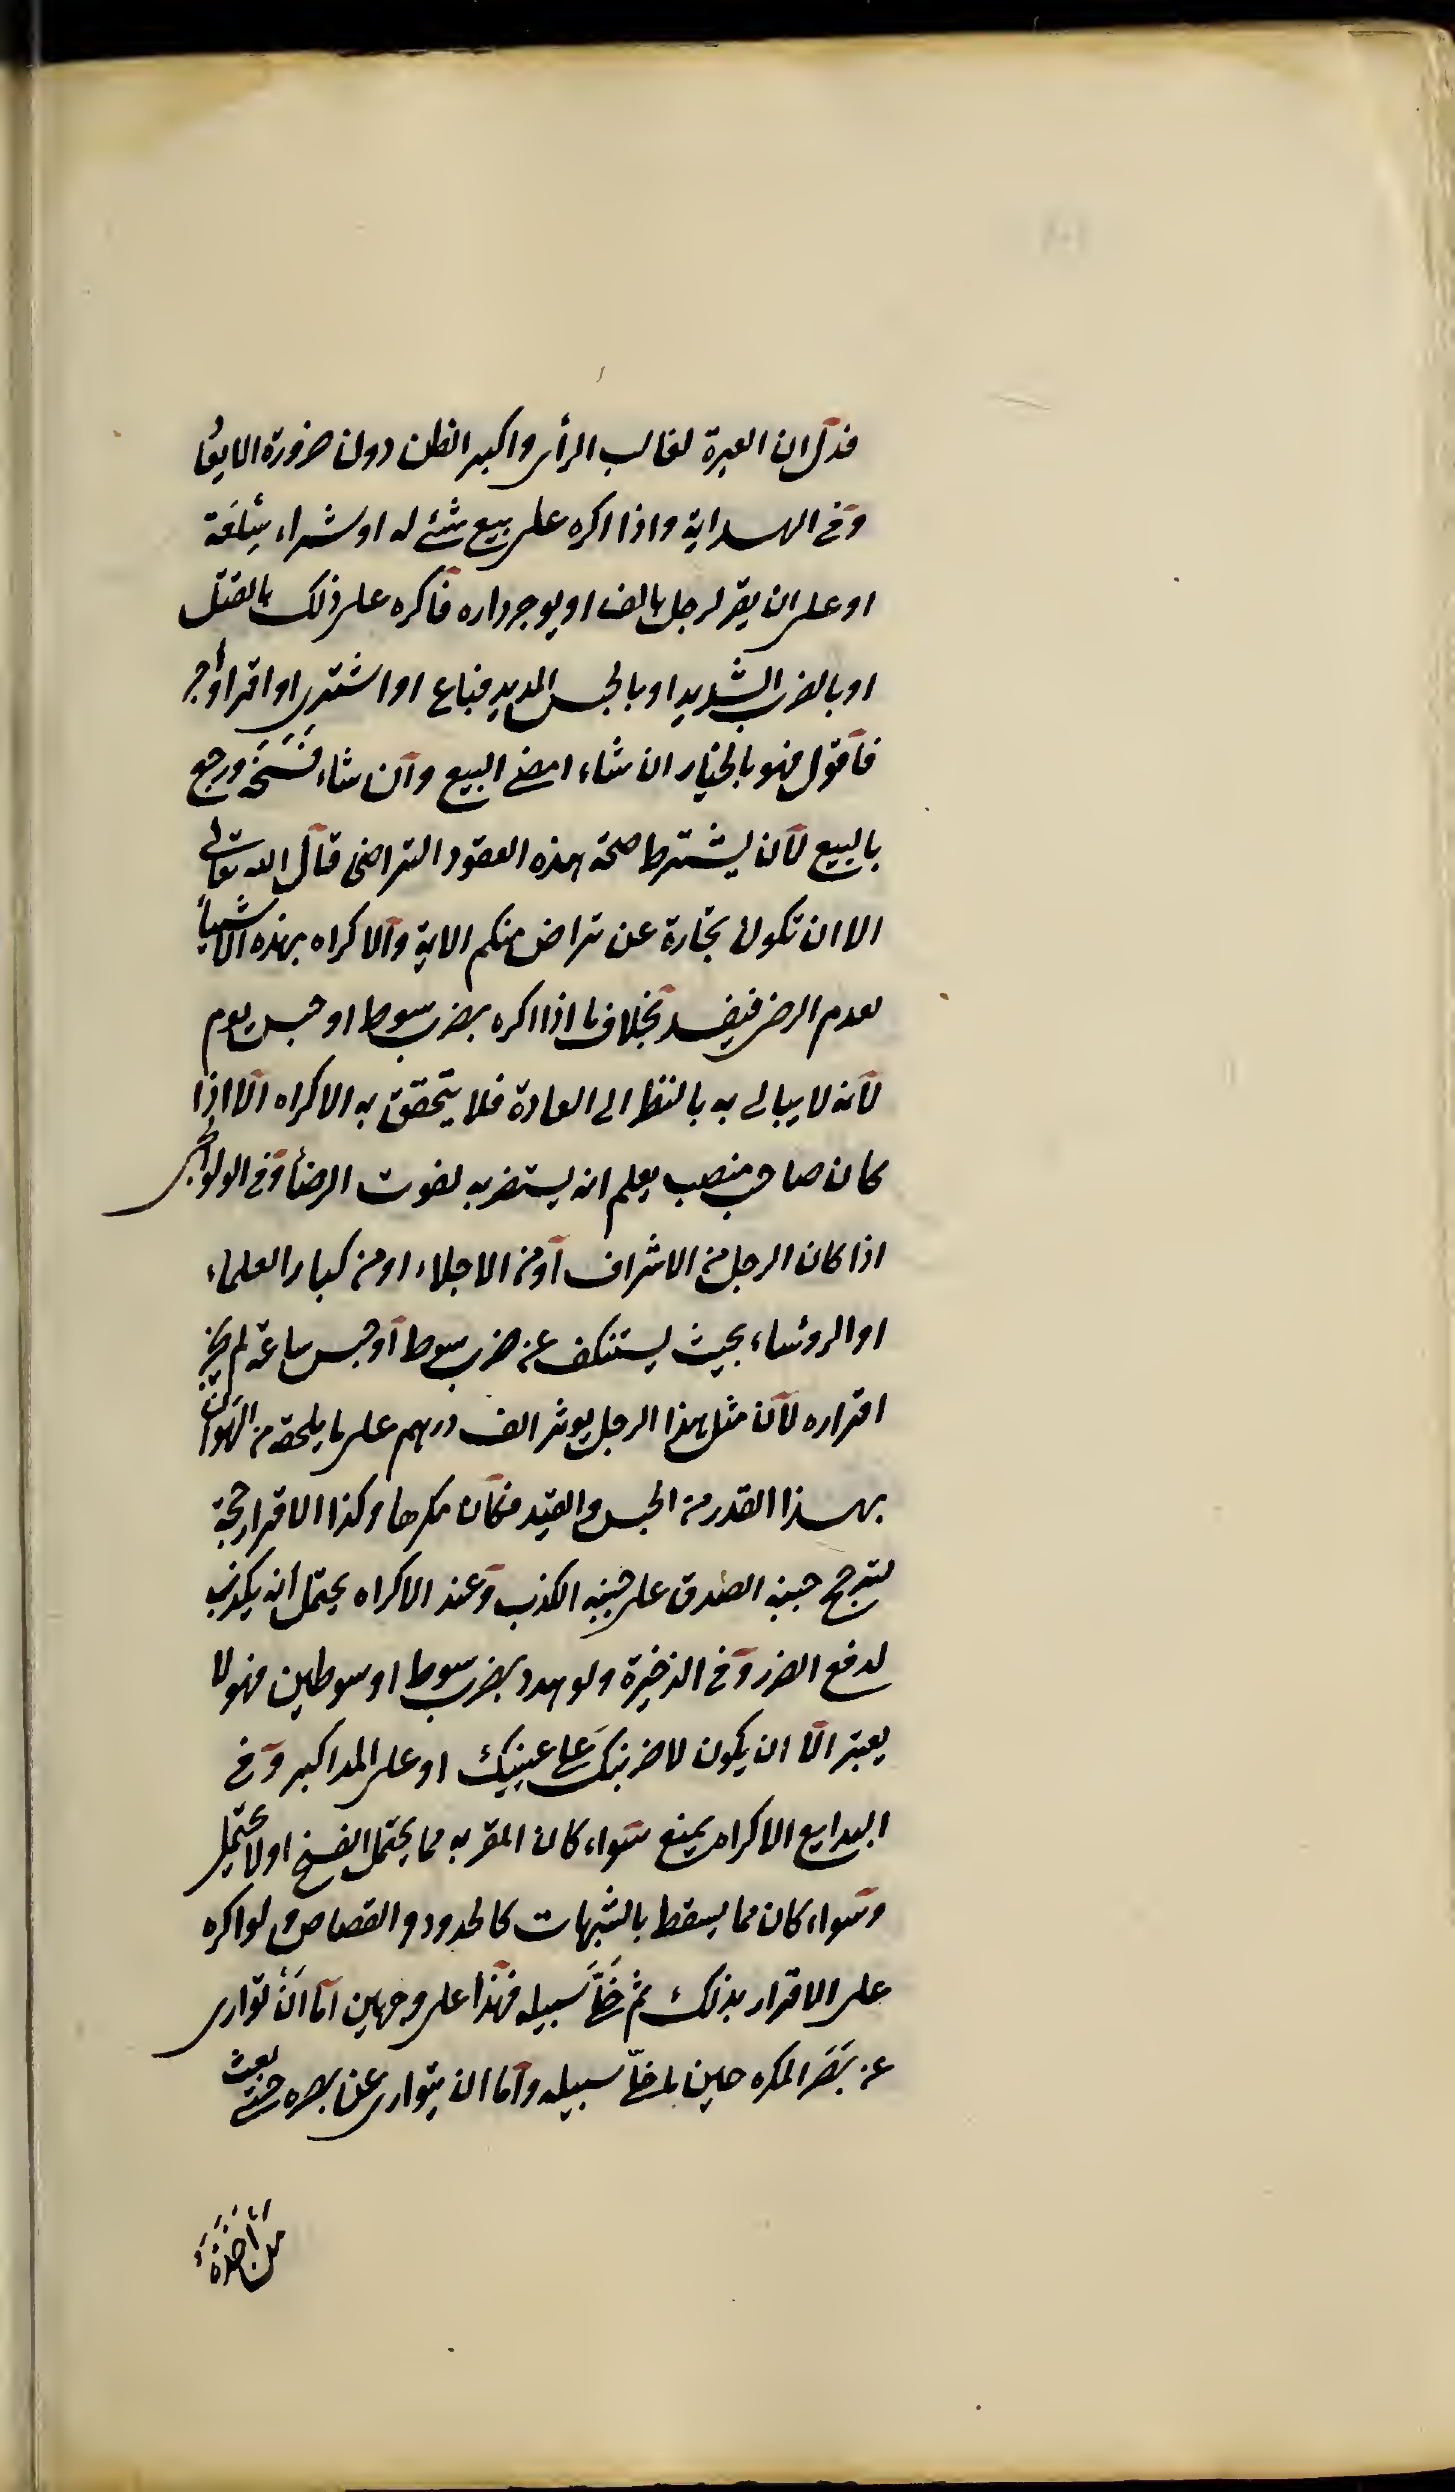 فدل ان العبرة لغالب الرأى واكبر الظن دون ضرورة الايقا
وفى الهداية واذا اكره على بيع شئ له او شراء سلعة
او على ان يقر لرجل بالف او يوجر داره فاكره على ذلك بالقتل
او بالضرب الشديد او بالحبس المديد فباع او اشترى او اقر او أجر
فأقول فهو بالخيار ان شاء امضى البيع وان شاء فسخه ورجع
بالبيع لان يشترط صحة هذه العقود التراضى قال الله تعالى
الا ان تكون تجارة عن تراض منكم الاية والاكراه بهذه الاشياء
لعدم الرضى فيفسد بخلاف ما اذا اكره بضرب سوط او حبس يوم
لانه لا يبالى به بالنظر الى العادة فلا يتحقق به الاكراه الا اذا
كان صاحب منصب يعلم انه يستضر به لفوت الرضأ وفى الولوالجى
اذا كان الرجل من الاشراف او من الاجلاء او من كبار العلماء
او الروئساء بحيث يستنكف عن ضرب سوط او حبس ساعة لم يجز
اقراره لان مثل هذا الرجل يوثر الف درهم على ما يلحقه من الهوان
بهذا القدر من الحبس والقيد فكان مكرها وكذا الاقرار حجة
لترجح جنبه الصدق على جنبه الكذب وعند الاكراه يحتمل انه يكذب
لدفع الضرر وفى الذخيرة ولو هدد بضرب سوط او سوطين فهو لا
يعتبر الا ان يكون لاضربنك على عينيك او على المداكير وفى
البدايع الاكراه يمنع سواء كان المقر به مما يحتمل الفسخ او لا يحتمل
وسواء كان مما يسقط بالشبهات كالحدود والقصاص ولو اكره
على الاقرار بذلك ثم خلّى سبيله فهذا على وجهين اما ان توارى
عن بصر المكره حين ما خلّى سبيله واما ان يتوارى عن بصره حتى بعث
من أخذه